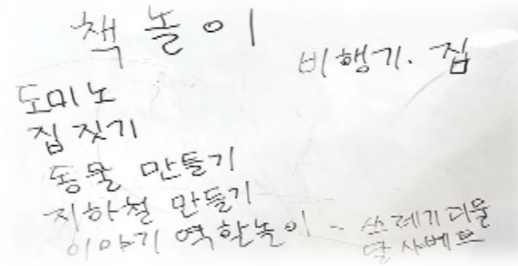 책 놀이
비행기. 집
도미노
집 짓기
동물 만들기
지하철 만들기
이야기 역할놀이 - 쓰레기괴물
딸 사베트